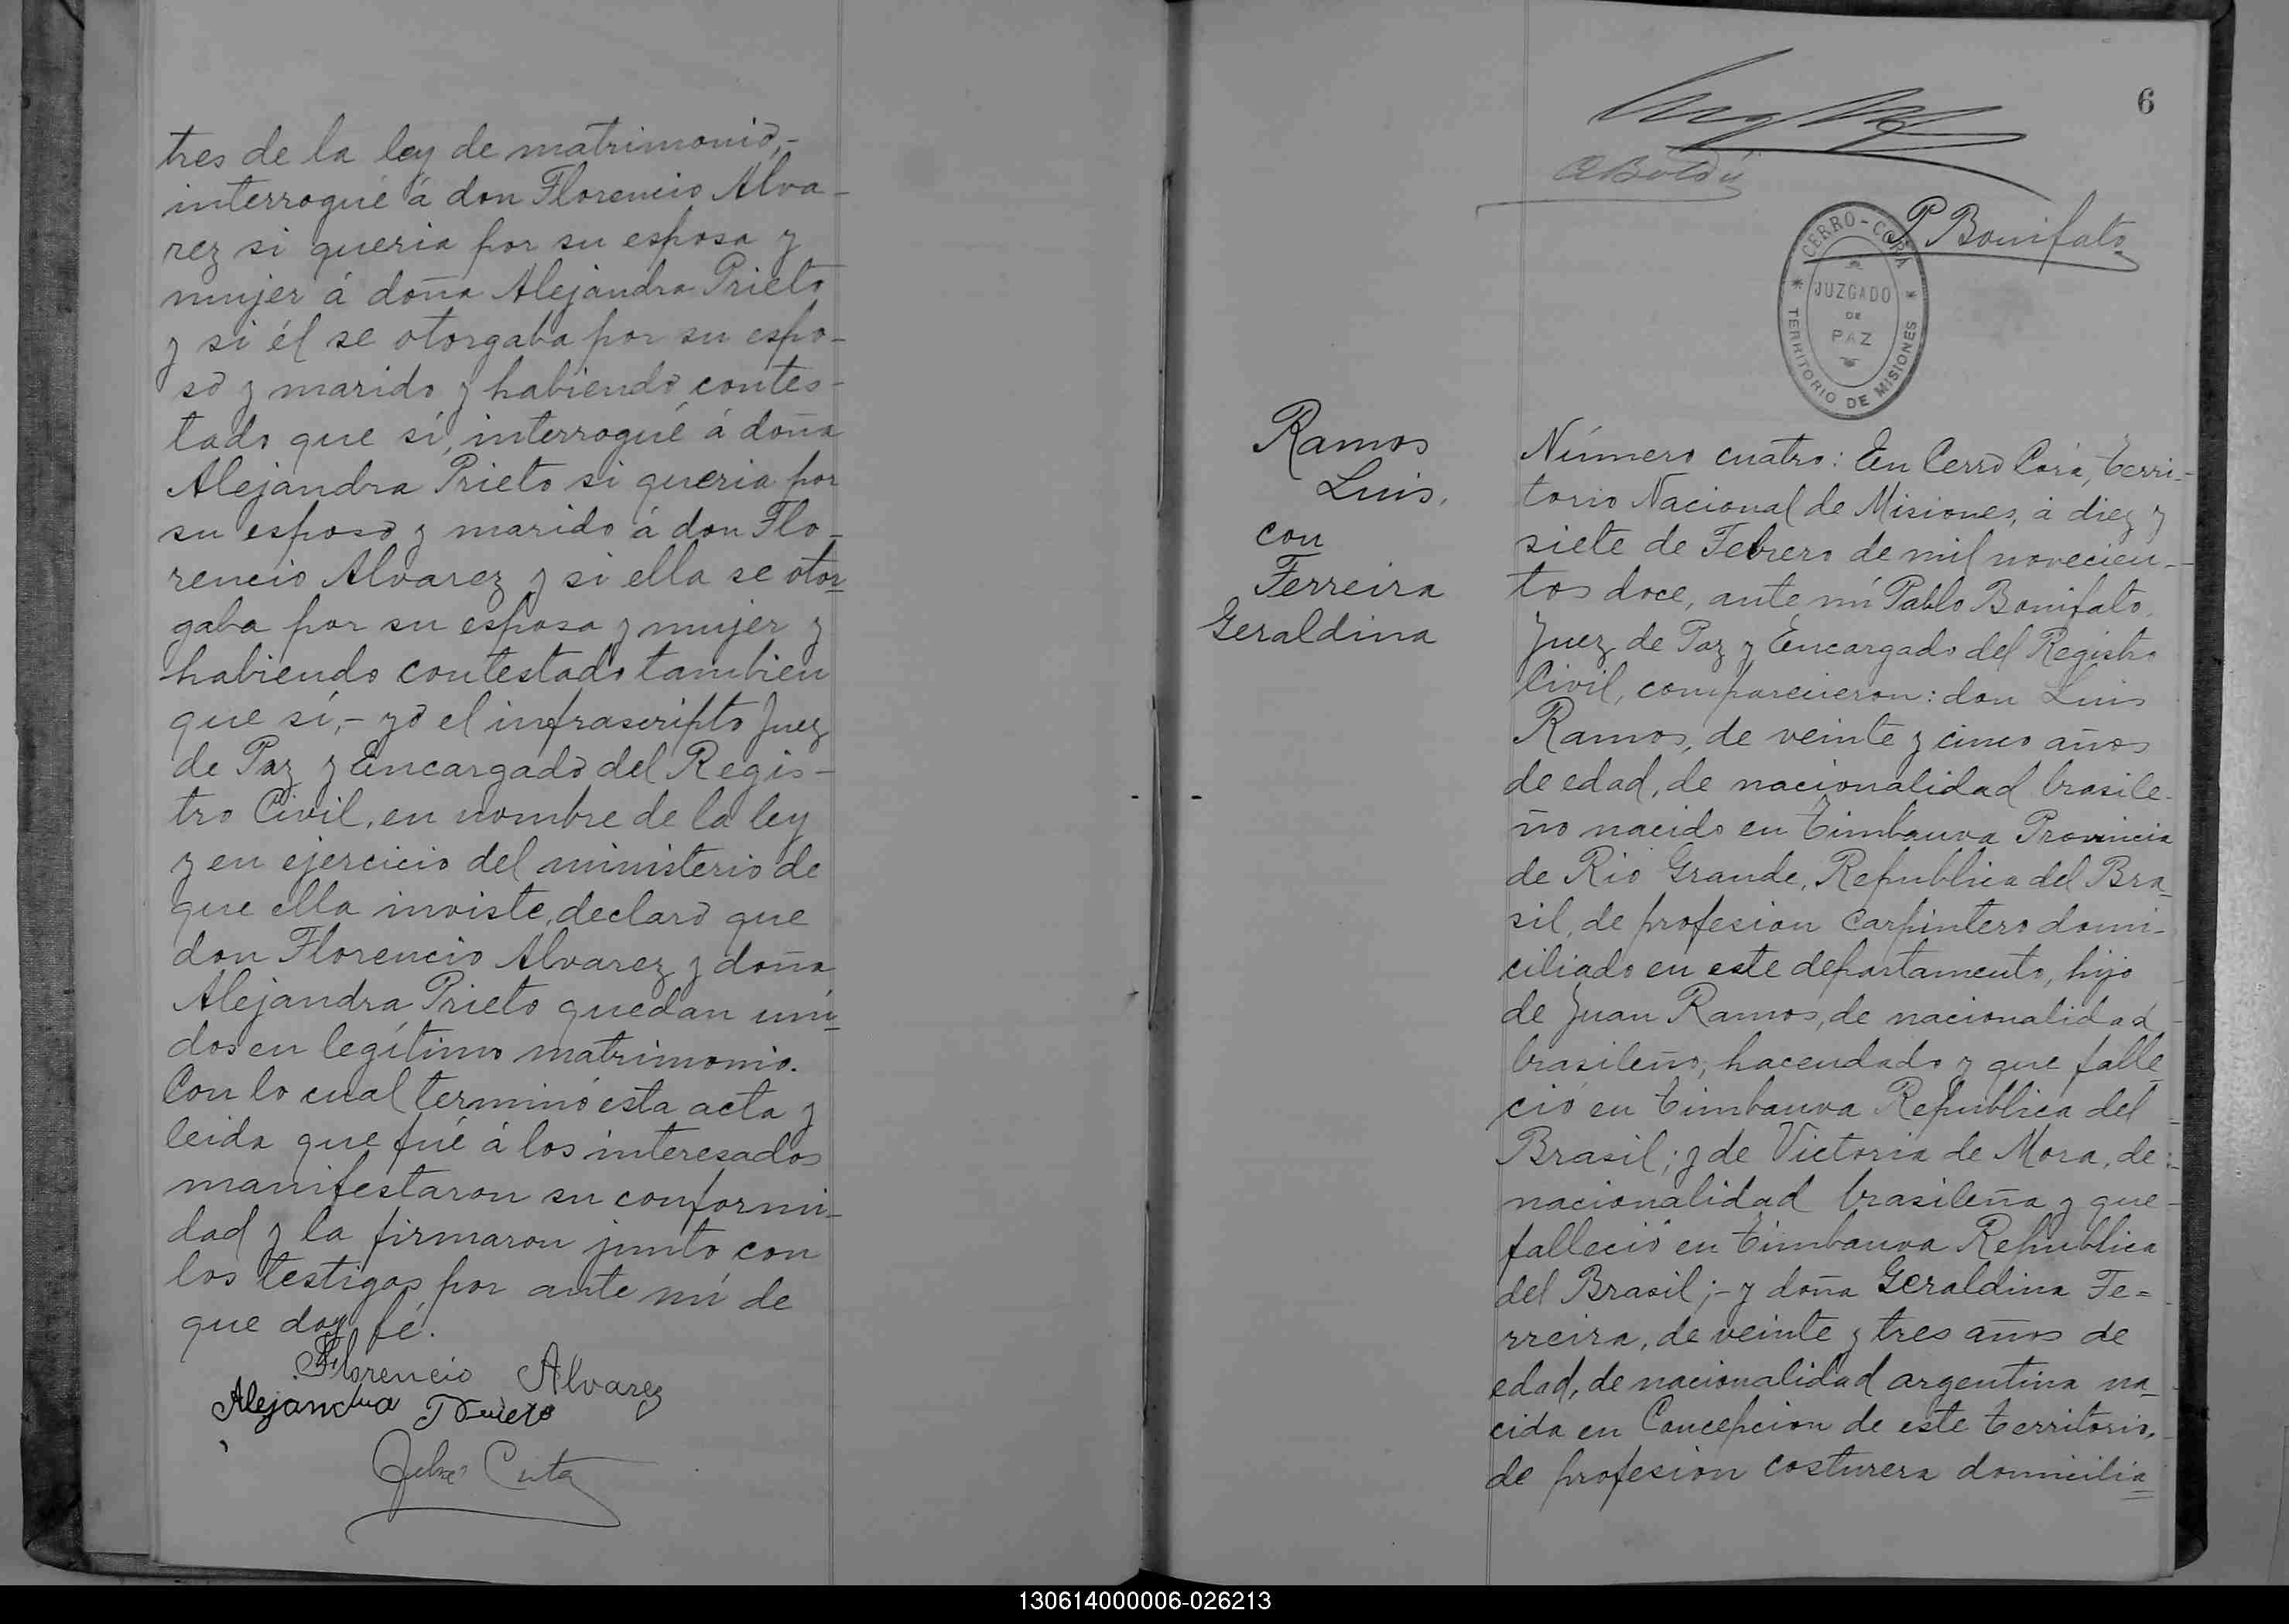 tres de la ley de matrimonio,-
interrogué á don Florencio Alva-
rez si queria por su esposa y
mujer á doña Alejandra Prieto
y si él se otorgaba por su espo-
so y marido y habiendo contes-
tado que si, interrogué á doña
Alejandra Prieto si queria por
su esposo y marido á don Flo-
rencio Alvarez y si ella se otor-
gaba por su esposa y mujer y
habiendo contestado tambien
que sí,- yo el infrascripto Juez
de Paz y Encargado del Regis-
tro Civil, en nombre de la ley
y en ejercicio del ministerio de
que ella inviste, declaro que
don Florencio Alvarez y doña
Alejandra Prieto quedan uni-
dos en legítimo matrimonio.
Con lo cual terminó esta acta y
leida que fué á los interesados
manifestaron su conformi-
dad y la firmaron junto con
los testigos por ante mí de
que doy fé.
Florencio Alvarez
Alejandra Prieto
6
P Bonifato
CERRO-CORÁ
JUZGADO
DE
PAZ
TERRITORIO DE MISIONES
Ramos
Luis,
con
Ferreira
Geraldina
Número cuatro: En Cerro Corá, terri-
torio Nacional de Misiones, á diez y
siete de Febrero de mil novecien-
tos doce, ante mí Pablo Bonifato,
Juez de Paz y Encargado del Registro
Civil, comparecieron: don Luis
Ramos, de veinte y cinco años
de edad, de nacionalidad brasile-
ño nacido en Timbauva Provincia
de Rio Grande, Republica del Bra-
sil, de profesion carpintero domi-
ciliado en este departamento, hijo
de Juan Ramos, de nacionalidad
brasileño, hacendado y que falle-
ció en Timbauva Republica del
Brasil; y de Victoria de Mora, de
nacionalidad brasileña y que
falleció en Timbauva Republica
del Brasil;- y doña Geraldina Fe-
rreira, de veinte y tres años de
edad, de nacionalidad argentina na-
cida en Concepcion de este territorio,
de profesion costurera domicilia=
130614000006-026213